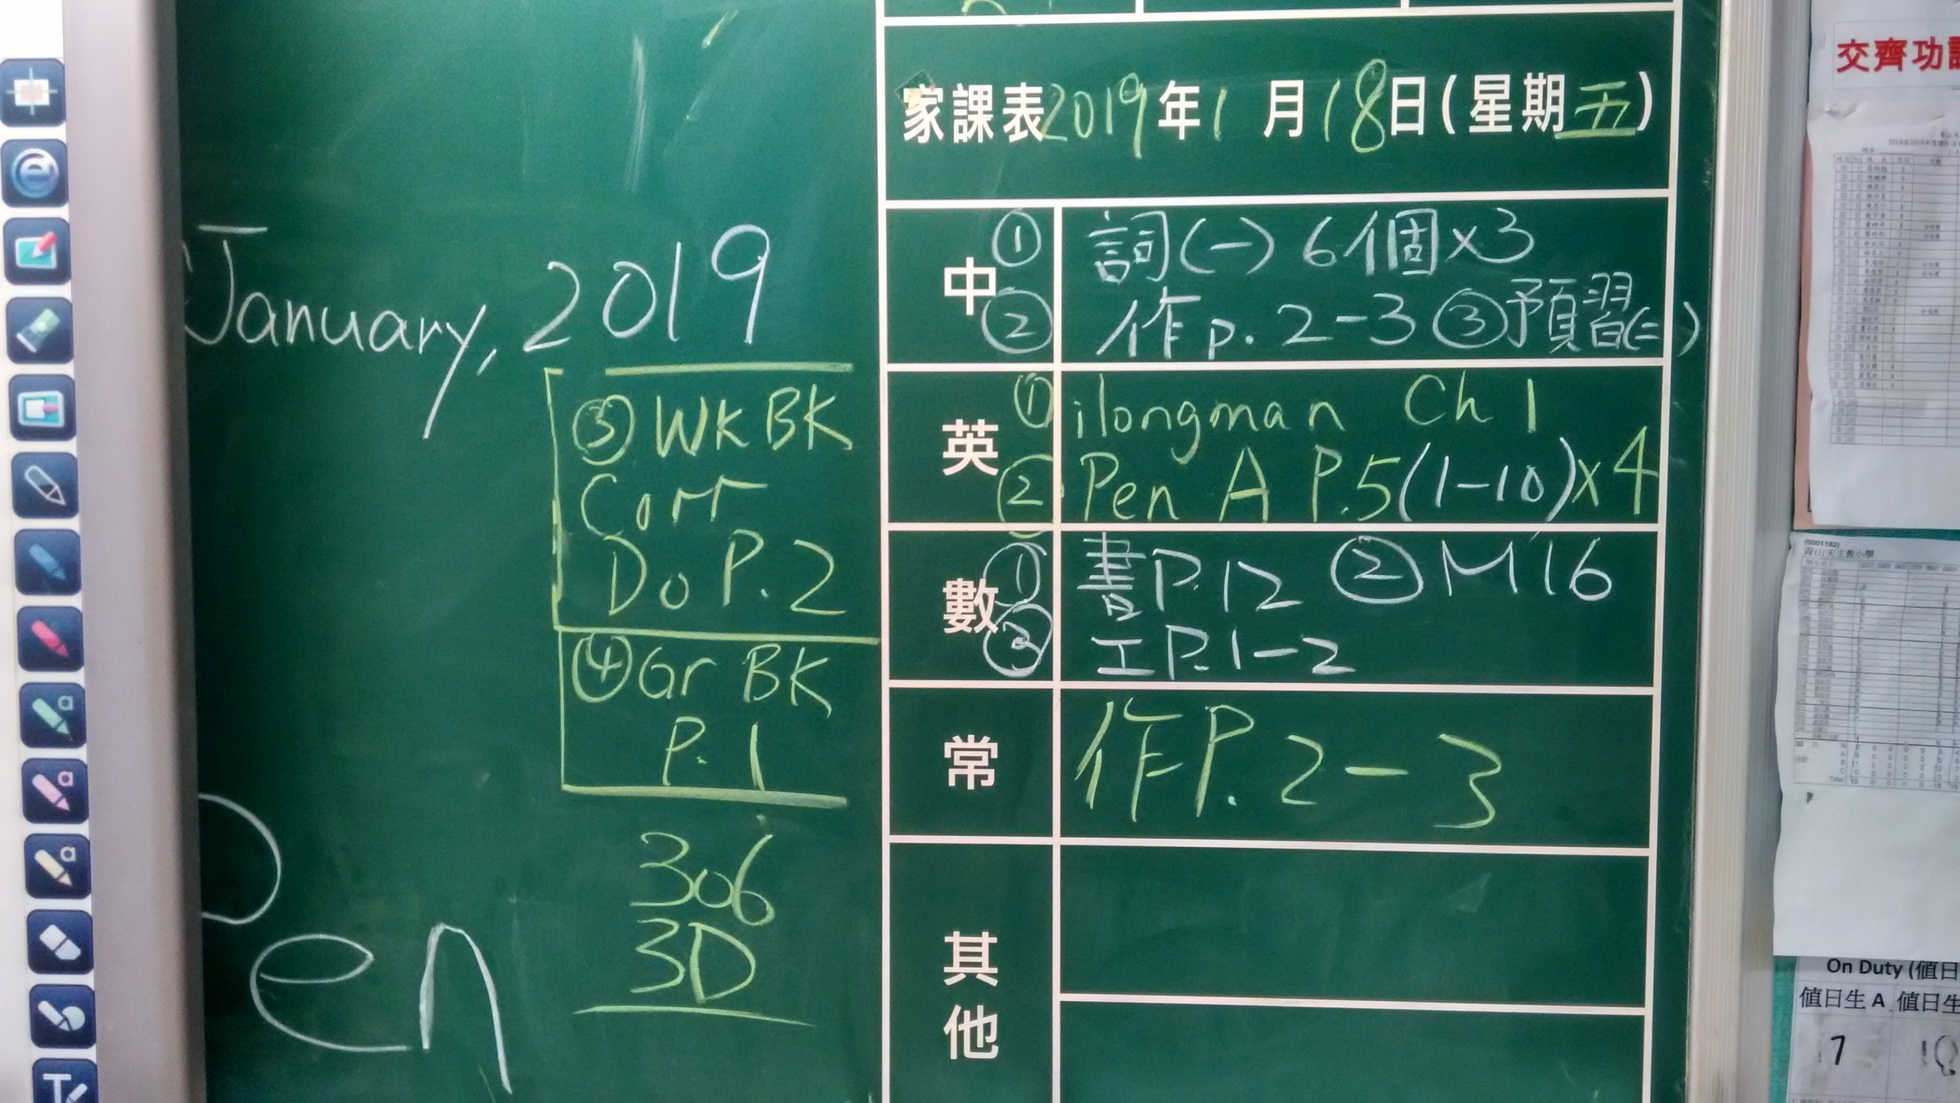 January, 2019
③ WK BK
Corr
Do P.2
④ Gr BK
P.1
306
3D
Pen
家課表2019年1月18日(星期五)
中
① 詞(一) 6個×3
② 作p. 2-3 ③預習(二)
英
① ilongman Ch 1
② Pen A P.5(1-10)×4
數
① 書P.12 ② M16
③ 工P.1-2
常
作P.2-3
其他
交齊功課
On Duty (值日
值日生 A 值日生
7